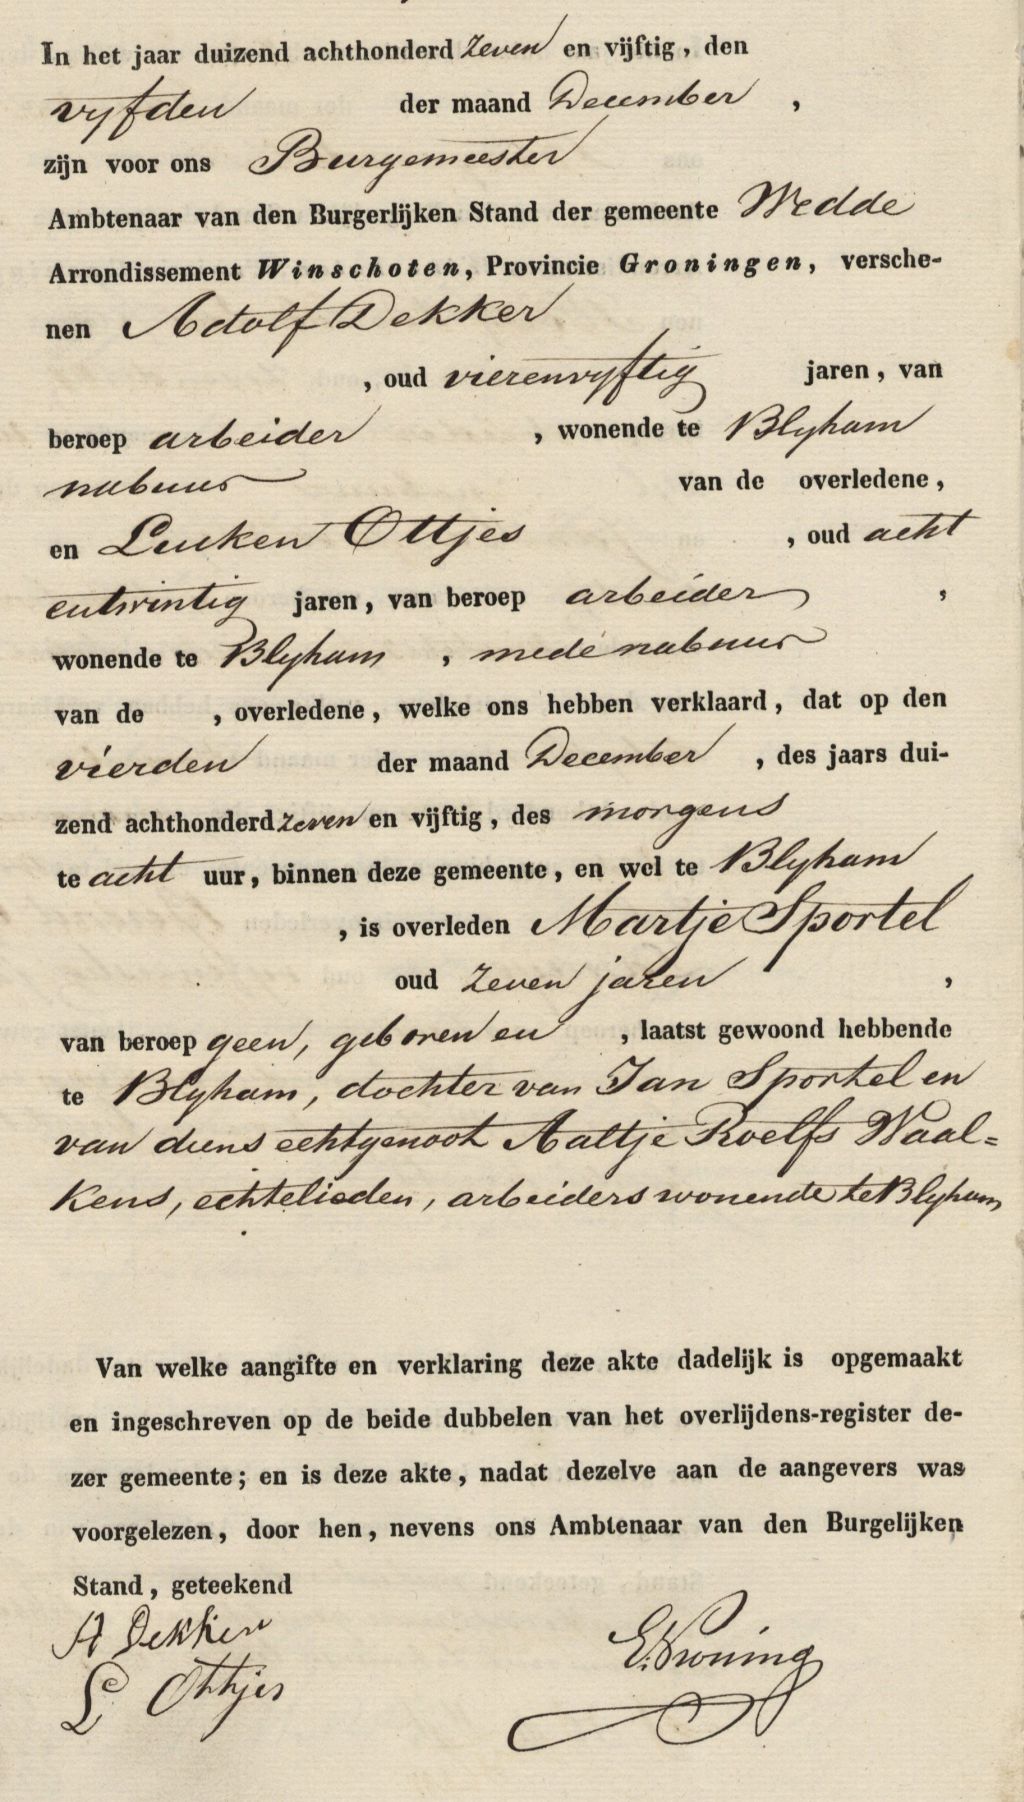 In het jaar duizend achthonderd zeven en vijftig, den
vyfden der maand December,
zijn voor ons Burgemeester
Ambtenaar van den Burgerlijken Stand der gemeente Wedde
Arrondissement Winschoten, Provincie Groningen, versche-
nen Adolf Dekker
, oud vierenvyftig jaren, van
beroep arbeider, wonende te Blyham
nabuur van de overledene,
en Luken Ottjes, oud acht
entwintig jaren, van beroep arbeider,
wonende te Blyham, mede nabuur
van de , overledene, welke ons hebben verklaard, dat op den
vierden der maand December, des jaars dui-
zend achthonderd zeven en vijftig, des morgens
te acht uur, binnen deze gemeente, en wel te Blyham
, is overleden Martje Sportel
oud zeven jaren,
van beroep geen, geboren en, laatst gewoond hebbende
te Blyham, dochter van Jan Sportel en
van diens echtgenoot Aaltje Roelfs Waal=
kens, echtelieden, arbeiders wonende te Blyham
Van welke aangifte en verklaring deze akte dadelijk is opgemaakt
en ingeschreven op de beide dubbelen van het overlijdens-register de-
zer gemeente; en is deze akte, nadat dezelve aan de aangevers was
voorgelezen, door hen, nevens ons Ambtenaar van den Burgelijken
Stand, geteekend
A Dekker
L Ottjes